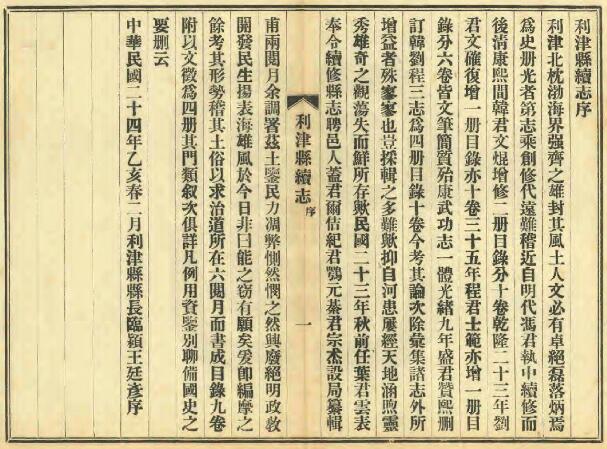 利津縣續志序
利津北枕渤海界強齊之雄封其風土人文必有卓絕磊落炳焉
為史册光者第志乘創修代遠難稽近自明代馮君執中續修而
後清康熙間韓君文焜增修二册目錄分十卷乾隆二十三年劉
君文確復增一册目錄亦十卷三十五年程君士範亦增一册目
錄分六卷皆文筆簡質殆康武功志一體光緒九年盛君贊熙删
訂韓劉程三志為四册目錄十卷今考其論次除彙集諸志外所
增益者殊寥寥也豈採輯之多難歟抑自河患屢經天地涵煦靈
秀雄奇之觀蕩失而鮮所存歟民國二十三年秋前任葉君雲表
奉令續修縣志聘邑人蓋君爾佶紀君鶚元綦君宗杰設局纂輯
利津縣續志 序 一
甫兩閱月余調署茲土鑒民力凋弊惻然憫之然興廢絕明政敎
開發民生揚表海雄風於今日非曰能之窃有願矣爰卽編摩之
餘考其形勢稽其土俗以求治道所在六閱月而書成目錄九卷
附以文徵為四册其門類叙次俱詳凡例用資鑒別聊備國史之
要删云
中華民國二十四年乙亥春二月利津縣縣長臨潁王廷彥序